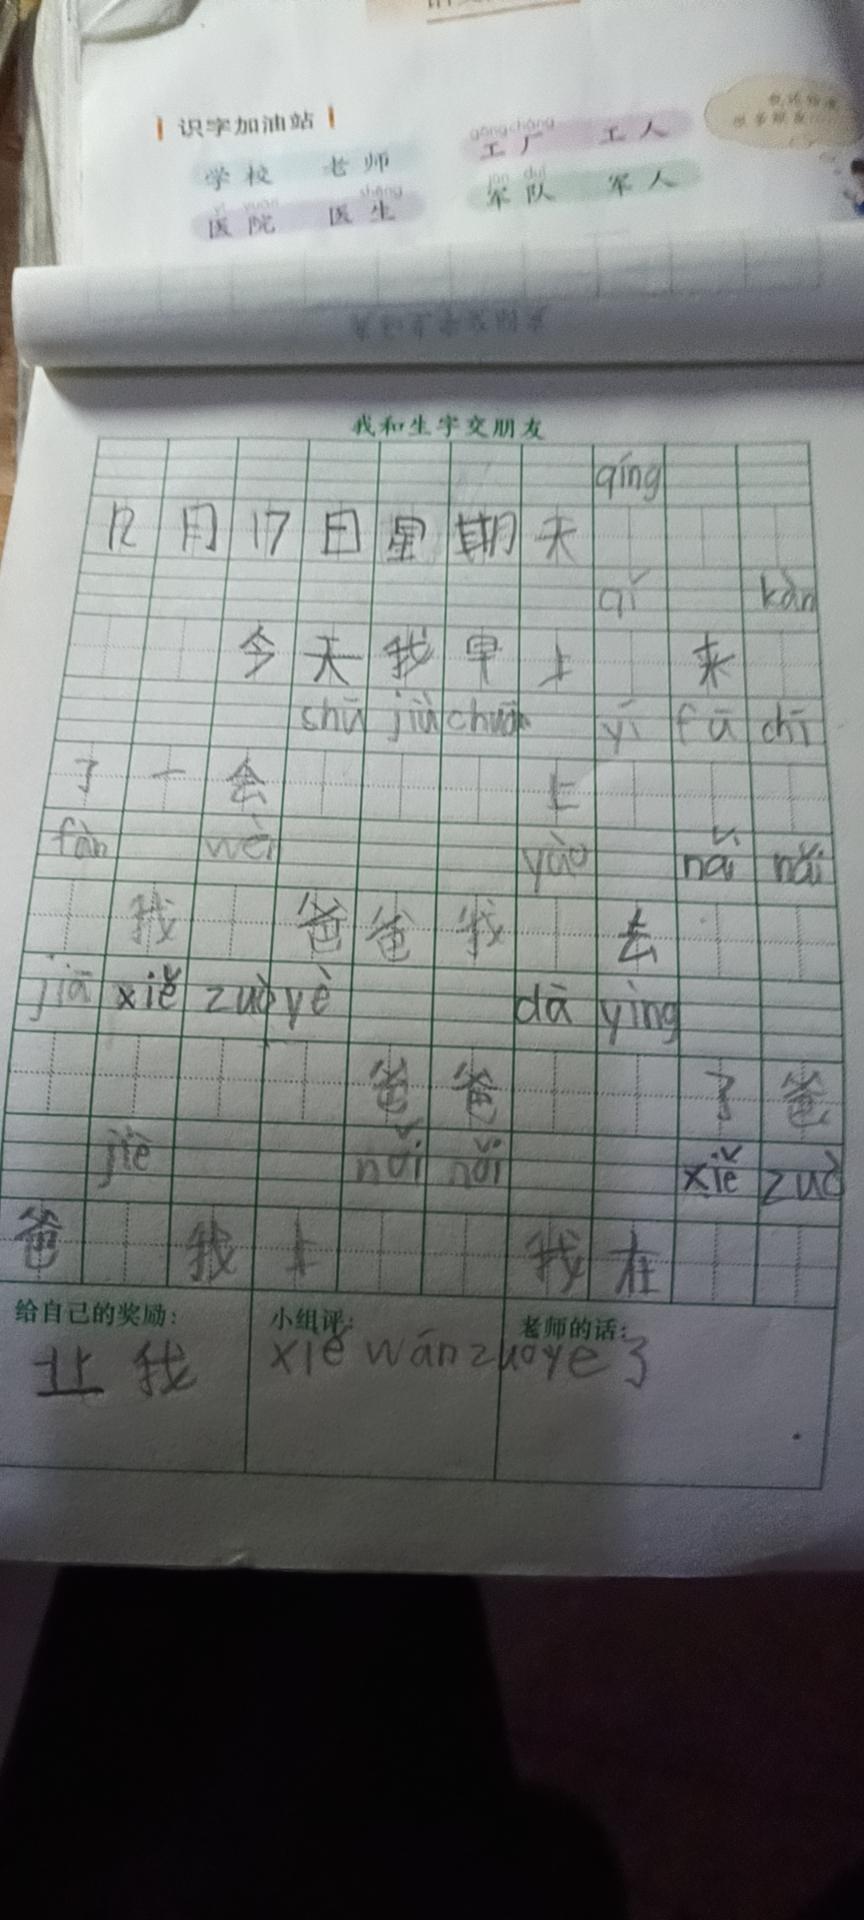 识字加油站
gōng chǎng
工厂 工人
学校 老师
jūn duì
军队 军人
yī yuàn shēng
医院 医生
我和生字交朋友
qíng
12月17日星期天
qǐ kàn
今天我早上 来
shū jiù chuān yī fū chī
了一会 上
fàn wèi yào nǎi nǎi
我 爸爸我 去
jiā xiě zuò yè dā yìng
爸爸 了爸
jiē nǎi nǎi xiě zuò
爸 我上 我在
给自己的奖励: 小组评: 老师的话:
让我 xiě wán zuo ye 了